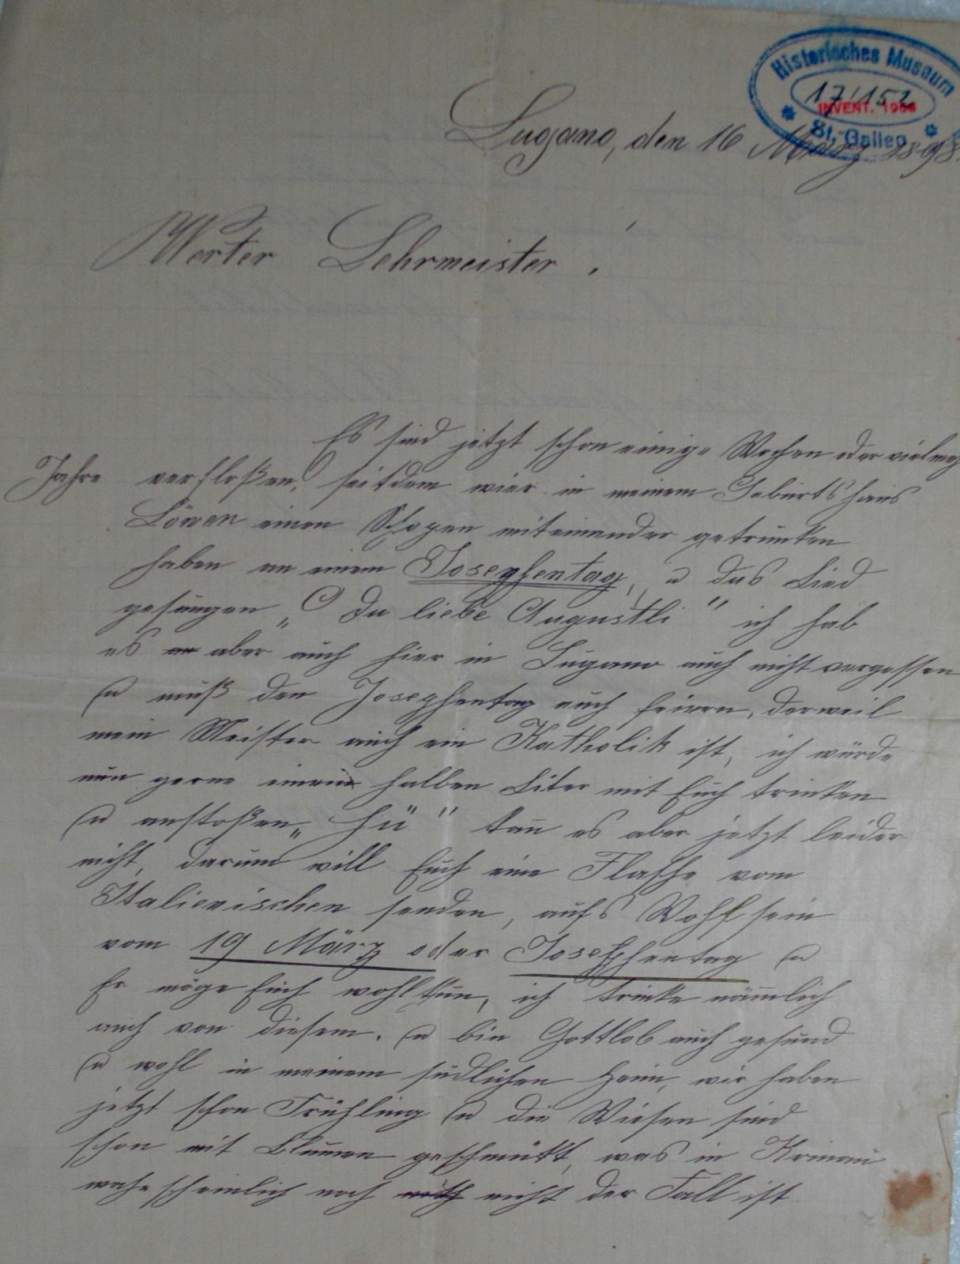 Historisches Museum
17'152
INVENT. 1956
St. Gallen
Lugano, den 16 März 1898.
Werter Lehrmeister!
Es sind jetzt schon einige Wochen oder vielmehr
Jahre verfloßen, seitdem wier in meinem Geburtshaus
Löwen einen Schopen miteinander getrunken
haben an einem Josephentag, u das Lied
gesungen „O Du liebe Augustli" ich hab
es aber auch hier in Lugano auch nicht vergessen
u muß den Josephentag auch feiren, derweil
mein Meister auch ein Katholik ist, ich würde
nun gerne einen halben Liter mit Euch trinken
u anstoßen „ Hü " kan es aber jetzt leider
nicht, darum will Euch eine Flasche vom
Italienischen senden, aufs Wohlsein
vom 19 März oder Josephentag u
Er möge Euch wohl thun, ich trinke nämlich
auch von diesem. u bin Gottlob auch gesund
u wohl in meinem südlichen Heim, wir haben
jetzt schon Frühling u die Wiesen sind
schon mit Blumen geschmükt, was in Krinau
wahrscheinlich noch nicht der Fall ist